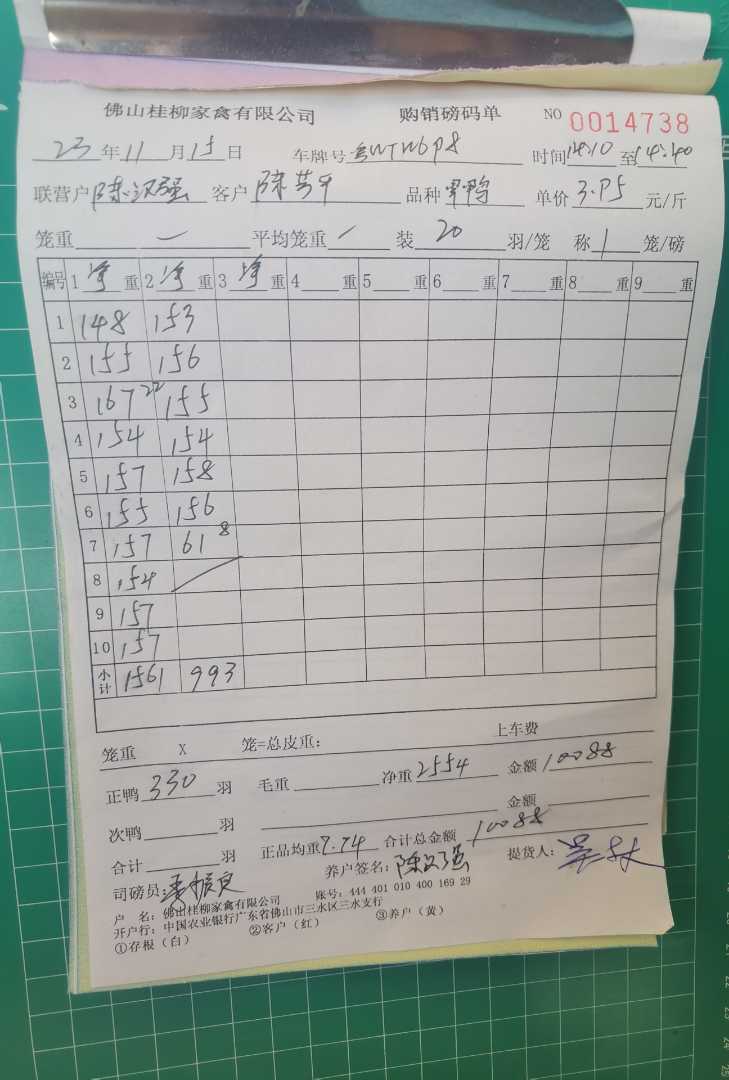 佛山桂柳家禽有限公司 购销磅码单 NO 0014738
23 年 11 月 15 日 车牌号 WTW6P8 时间 14:10 至 14:40
联营户 陈汉强 客户 陈芳平 品种 甲鸭 单价 3.95 元/斤
笼重 — 平均笼重 / 装 20 羽/笼 称 1 笼/磅
编号 1 净 重 2 净 重 3 净 重 4 重 5 重 6 重 7 重 8 重 9 重
1 148 153
2 155 156
3 167 22 155
4 154 154
5 157 158
6 155 156
7 157 61 8
8 154
9 157
10 157
小计 1561 993
笼重 X 笼=总皮重： 上车费
正鸭 330 羽 毛重 净重 2554 金额 10088
次鸭 羽 金额
合计 羽 正品均重 7.74 合计总金额 10088
司磅员： 养户签名：陈汉强 提货人：
户 名：佛山桂柳家禽有限公司 账号：444 401 010 400 169 29
开户行：中国农业银行广东省佛山市三水区三水支行
①存根（白） ②客户（红） ③养户（黄）